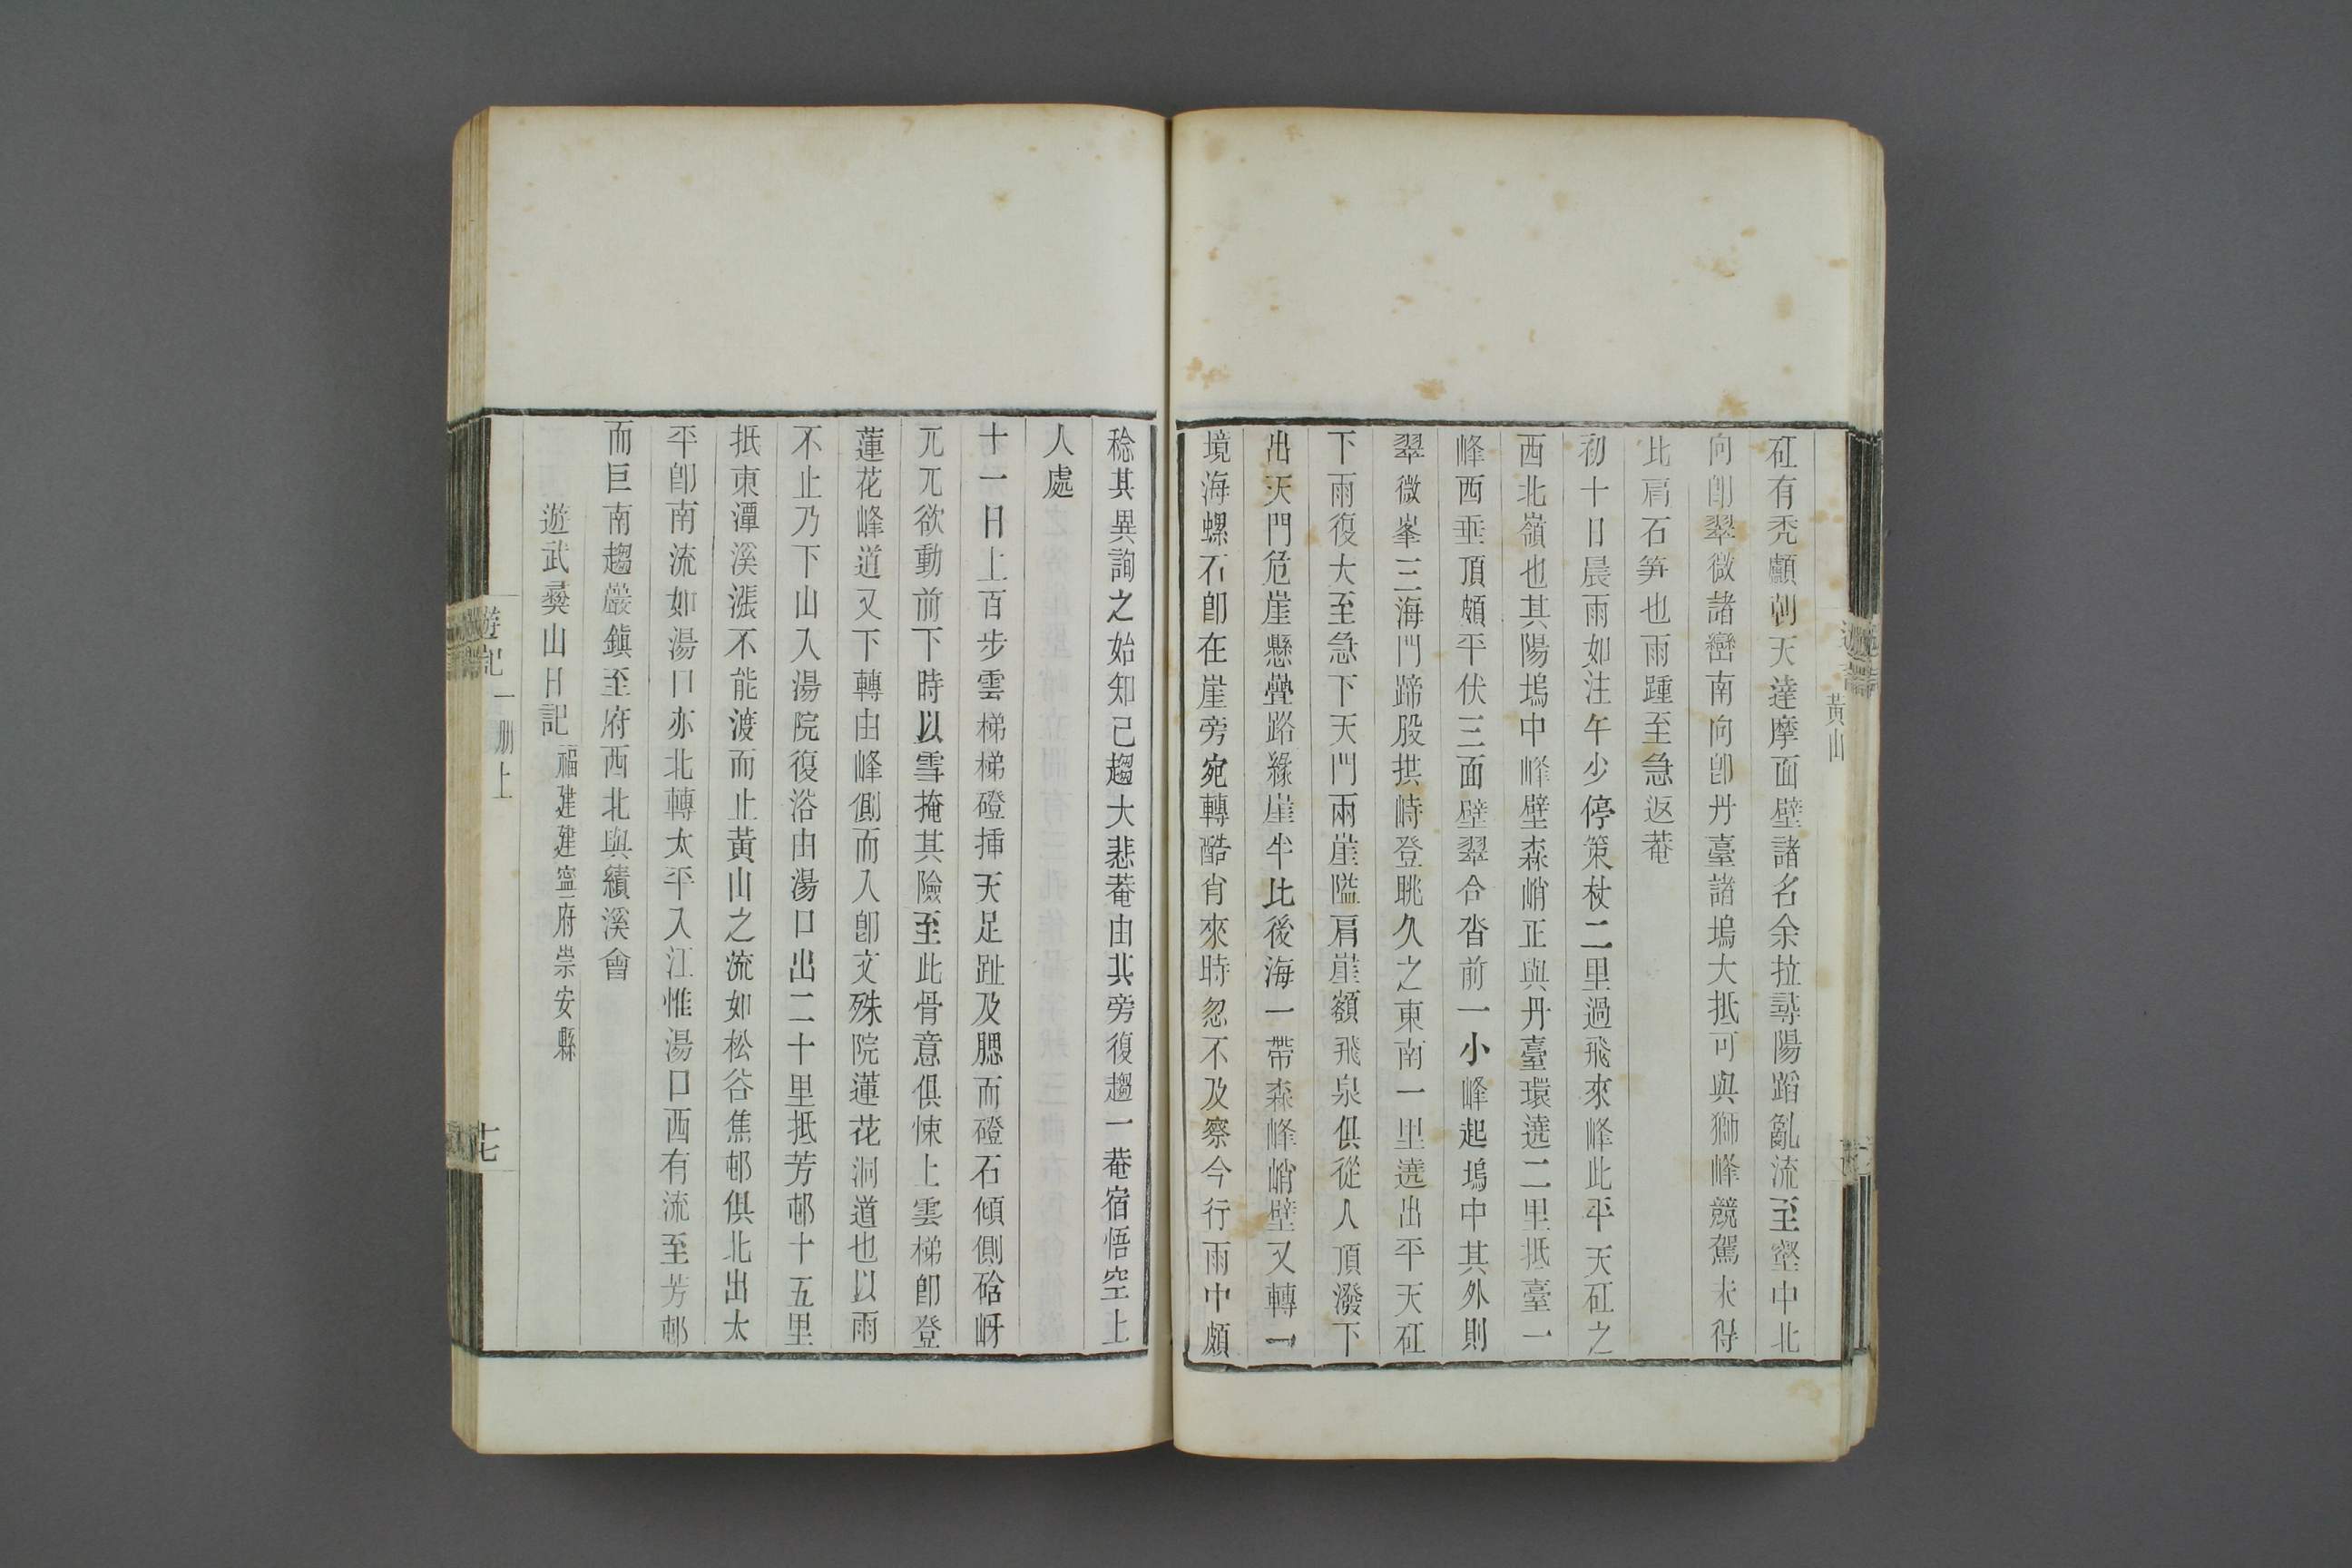 黃山
矼有禿顱朝天達摩面壁諸名余拉尋陽蹈亂流至壑中北
向卽翠微諸巒南向卽丹臺諸塢大抵可與獅峰競駕未得
比肩石笋也雨踵至急返菴
初十日晨雨如注午少停策杖二里過飛來峰此平天矼之
西北嶺也其陽塢中峰壁森峭正與丹臺環遶二里抵臺一
峰西垂頂頗平伏三面壁翠合沓前一小峰起塢中其外則
翠微峯三海門蹄股拱峙登眺久之東南一里遶出平天矼
下雨復大至急下天門兩崖隘肩崖額飛泉俱從人頂潑下
出天門危崖懸疊路緣崖半比後海一帶森峰峭壁又轉一
境海螺石卽在崖旁宛轉酷肖來時忽不及察今行雨中頗
稔其異詢之始知已趨大悲菴由其旁復趨一菴宿悟空上
人處
十一日上百步雲梯梯磴插天足趾及腮而磴石傾側硆岈
兀兀欲動前下時以雪掩其險至此骨意俱悚上雲梯卽登
蓮花峰道又下轉由峰側而入卽文殊院蓮花洞道也以雨
不止乃下山入湯院復浴由湯口出二十里抵芳邨十五里
抵東潭溪漲不能渡而止黃山之流如松谷焦邨俱北出太
平卽南流如湯口亦北轉太平入江惟湯口西有流至芳邨
而巨南趨巖鎮至府西北與績溪會
遊武彞山日記福建建寧府崇安縣
遊記
一册上
七